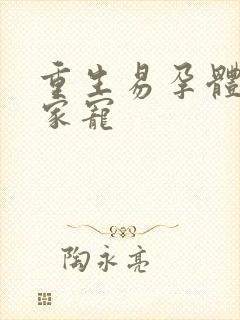 重生易孕體
家寵
陶永亮